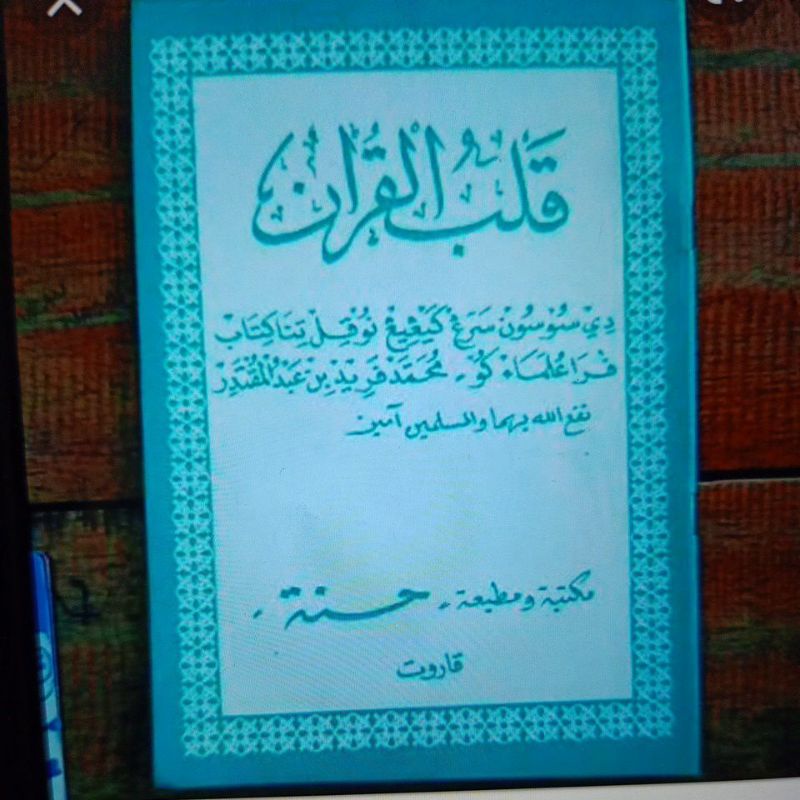 قَلْبُ الْقُرْآنِ
دِيْ سُوْسُوْنْ سَرَڠْ كَيْڠِيڠْ نُوْقِلْ تِنَا كِتَابْ
فَرَا عُلَمَاءْ كَوُ۔ مُحَمَّدْ فَرِيْدْ بِنْ عَبْدُ الْمُقْتَدِرْ
نفع الله بهما والمسلمين آمين
مكتبة ومطبعة - حسنة -
قاروت